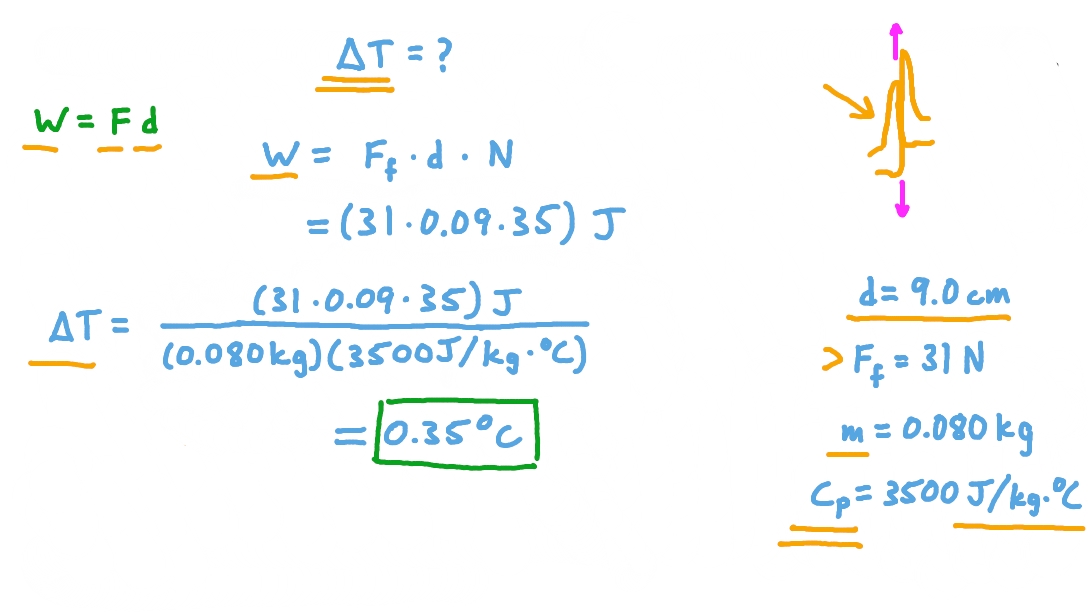 ΔT = ?
W = F d
W = F_f · d · N
= (31 · 0.09 · 35) J
ΔT = (31 · 0.09 · 35) J
(0.080kg)(3500J/kg·°C)
= 0.35°C
d = 9.0 cm
> F_f = 31 N
m = 0.080 kg
C_p = 3500 J/kg·°C